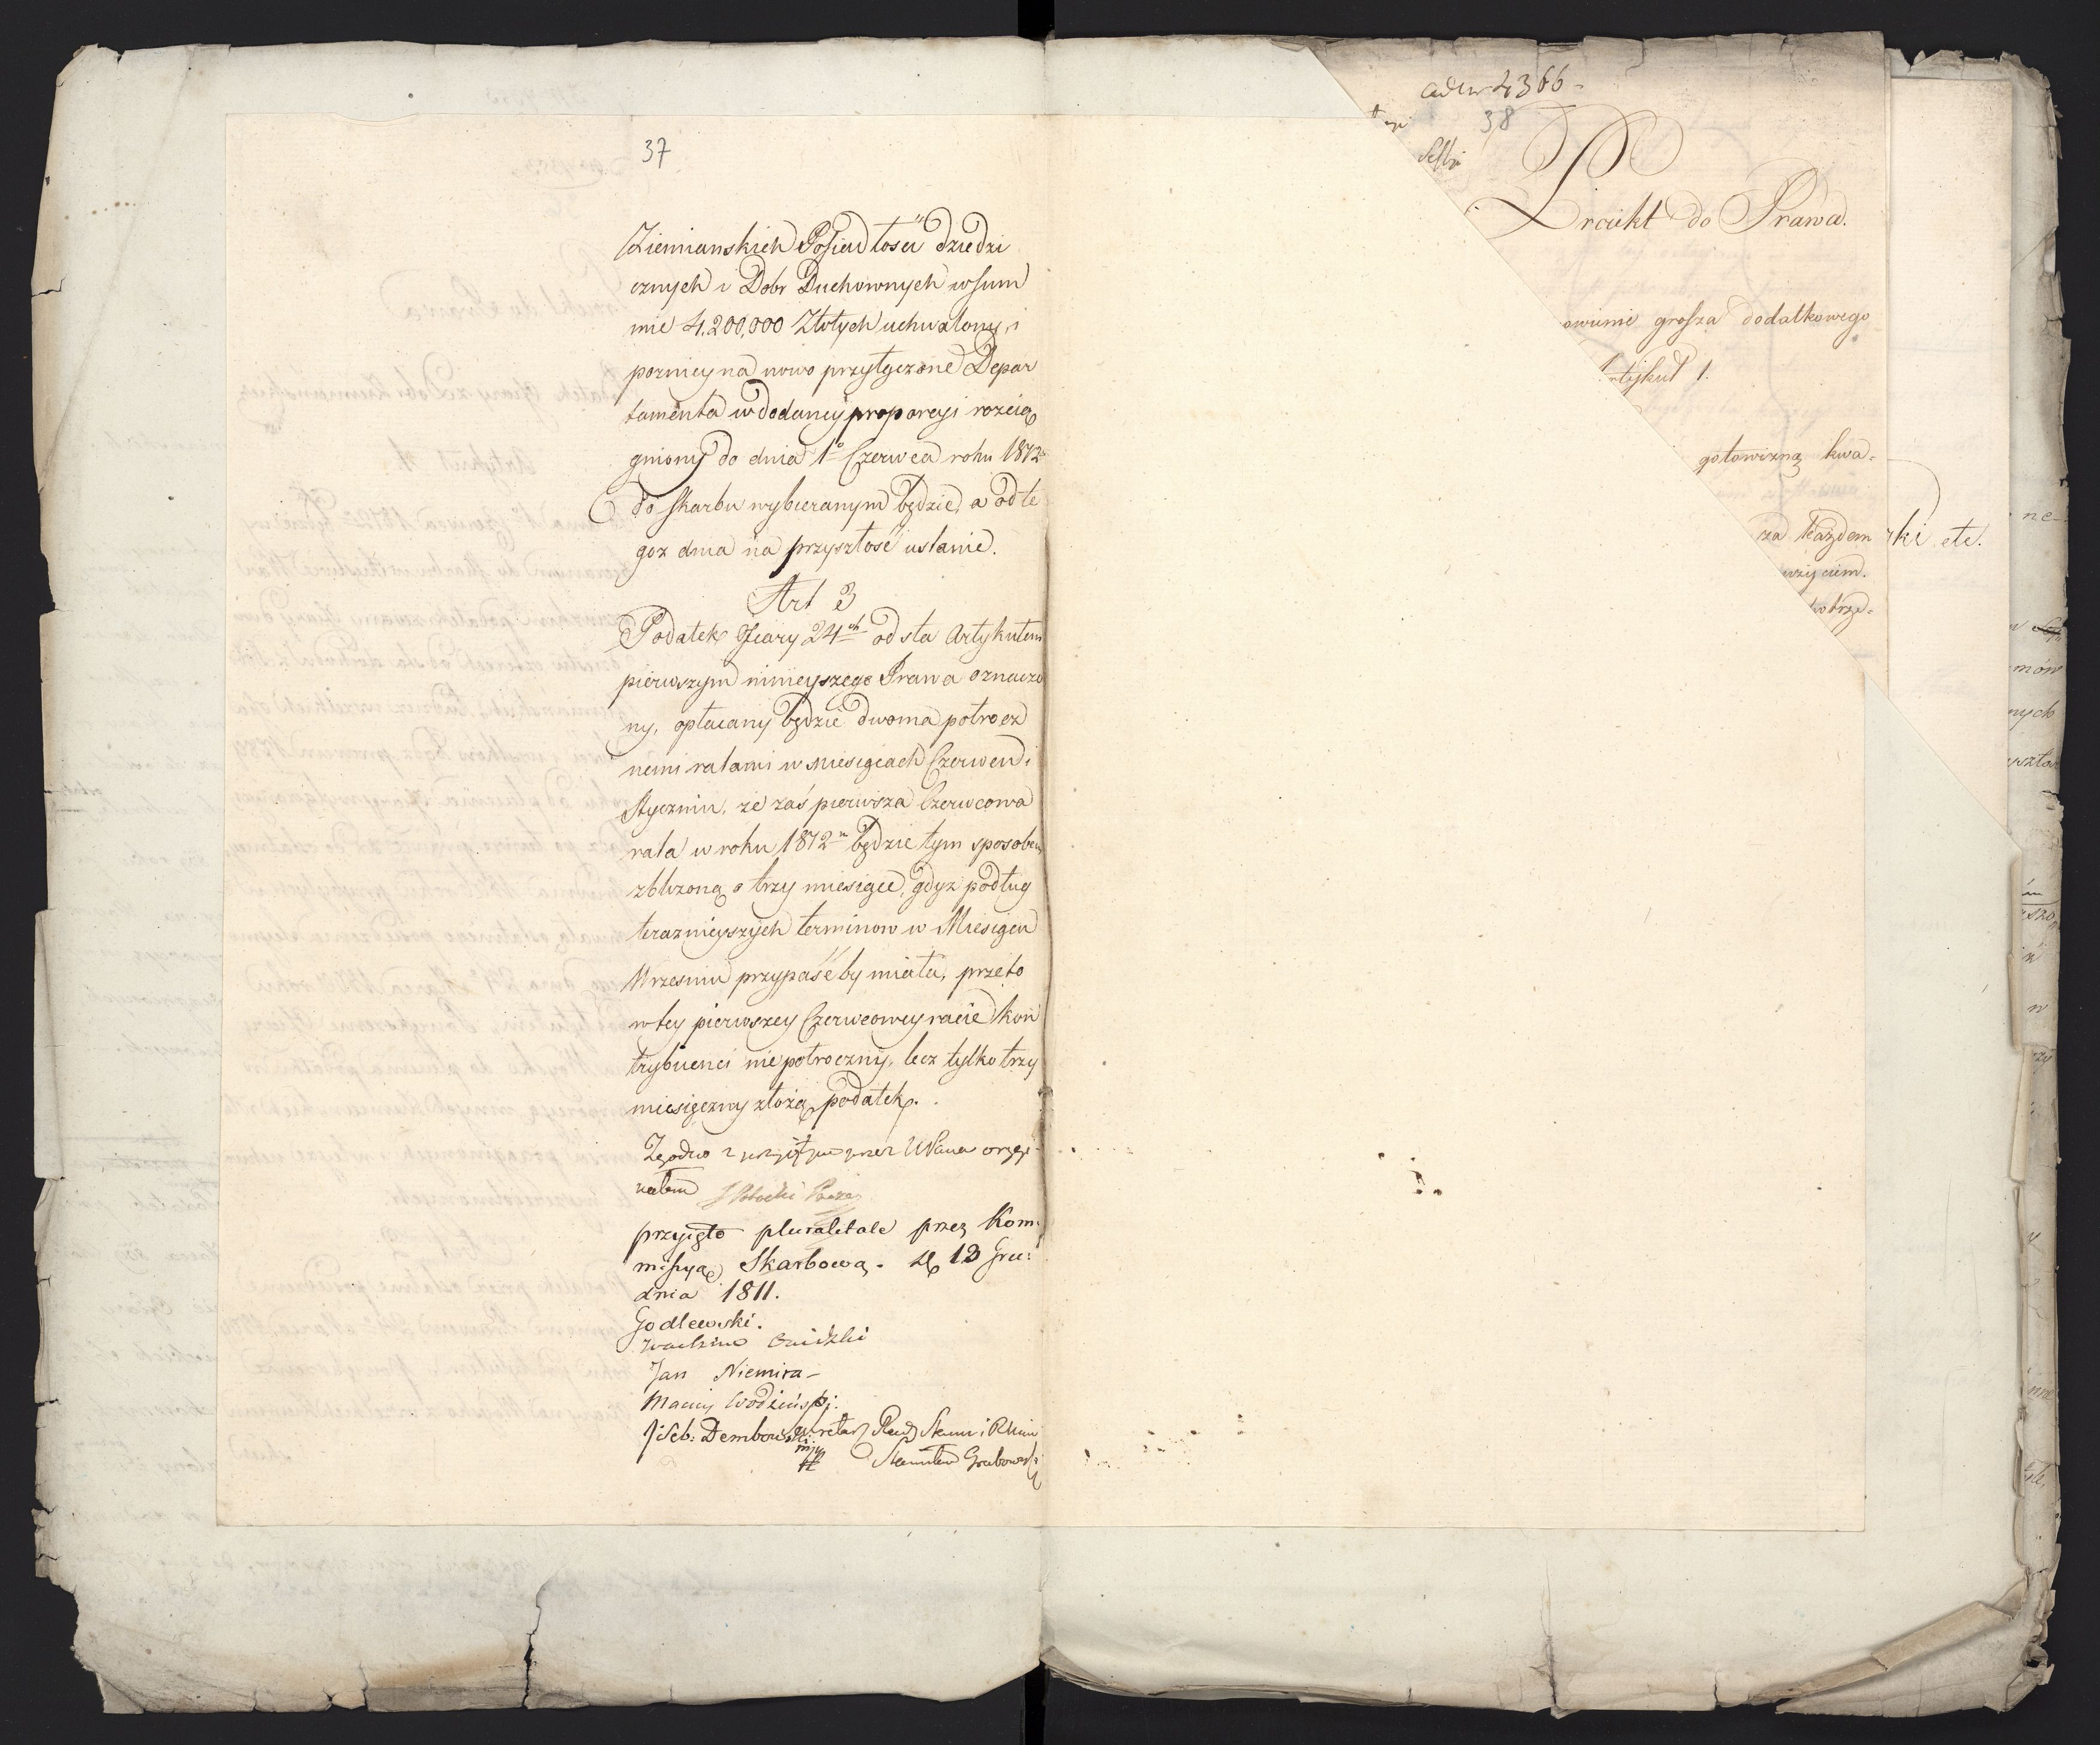 37
Ziemianskich Posiadłosci dziedzi
cznych i Dobr Duchownych w Sum
mie 4,200,000 Złotych uchwalony, i
pozniey na nowo przyłączone Depar
tamenta w dodaney proporcyi rozcią
gniony do dnia 1o Czerwca roku 1812o
do Skarbu wybieranym będzie, a od te
goz dnia na przyszłość ustanie.
Art 3
Podatek Ofiary 24ch od sta Artykułem
pierwszym ninieyszego Prawa oznaczo
ny, opłacany będzie dwoma połrocz
nemi ratami w Miesiącach Czerwcu i
Styczniu, ze zaś pierwsza Czerwcowa
rata w roku 1812m będzie tym sposobem
zblizoną o trzy miesiące, gdyz podług
teraznieyszych terminow w Miesiącu
Wrzesniu przypaśćby miała, przeto
w tey pierwszey Czerwcowey racie Kon
trybuenci nie połroczny, lecz tylko trzy
miesięczny złożą podatek.
Zgodno z przyjętym przez orygi
nałem
przyięto pluralitate przez Kom:
missyą Skarbową. d. 13 Gru:
dnia 1811.
Godlewski.
Jan Niemira
Maciey Wodzińskj.
J: Seb: Dembowski Sekretarz Rady Stanu i Ministr
Stanisław Grabowski
ad Nr 4366
38
Proiekt do Prawa.
owanie grosza dodatkowego
Artykuł 1.
gotowizną kwa-
za każdem
użyciem.
potrze-
ki etc.
ne-
mów
nych